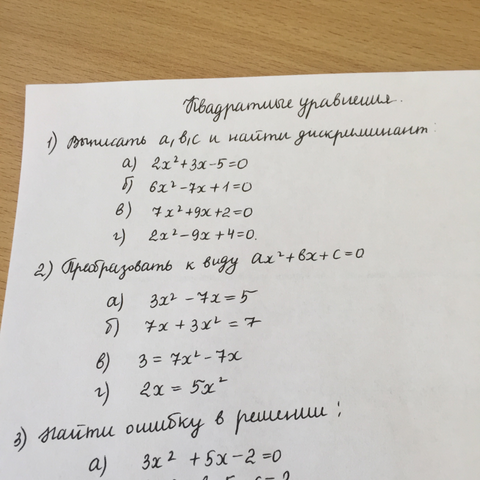 Квадратные уравнения.
1) Выписать a, b, c и найти дискриминант:
а) 2x²+3x-5=0
б) 6x²-7x+1=0
в) 7x²+9x+2=0
г) 2x²-9x+4=0.
2) Преобразовать к виду ax²+bx+c=0
а) 3x²-7x=5
б) 7x+3x²=7
в) 3=7x²-7x
г) 2x=5x²
3) Найти ошибку в решении:
а) 3x²+5x-2=0